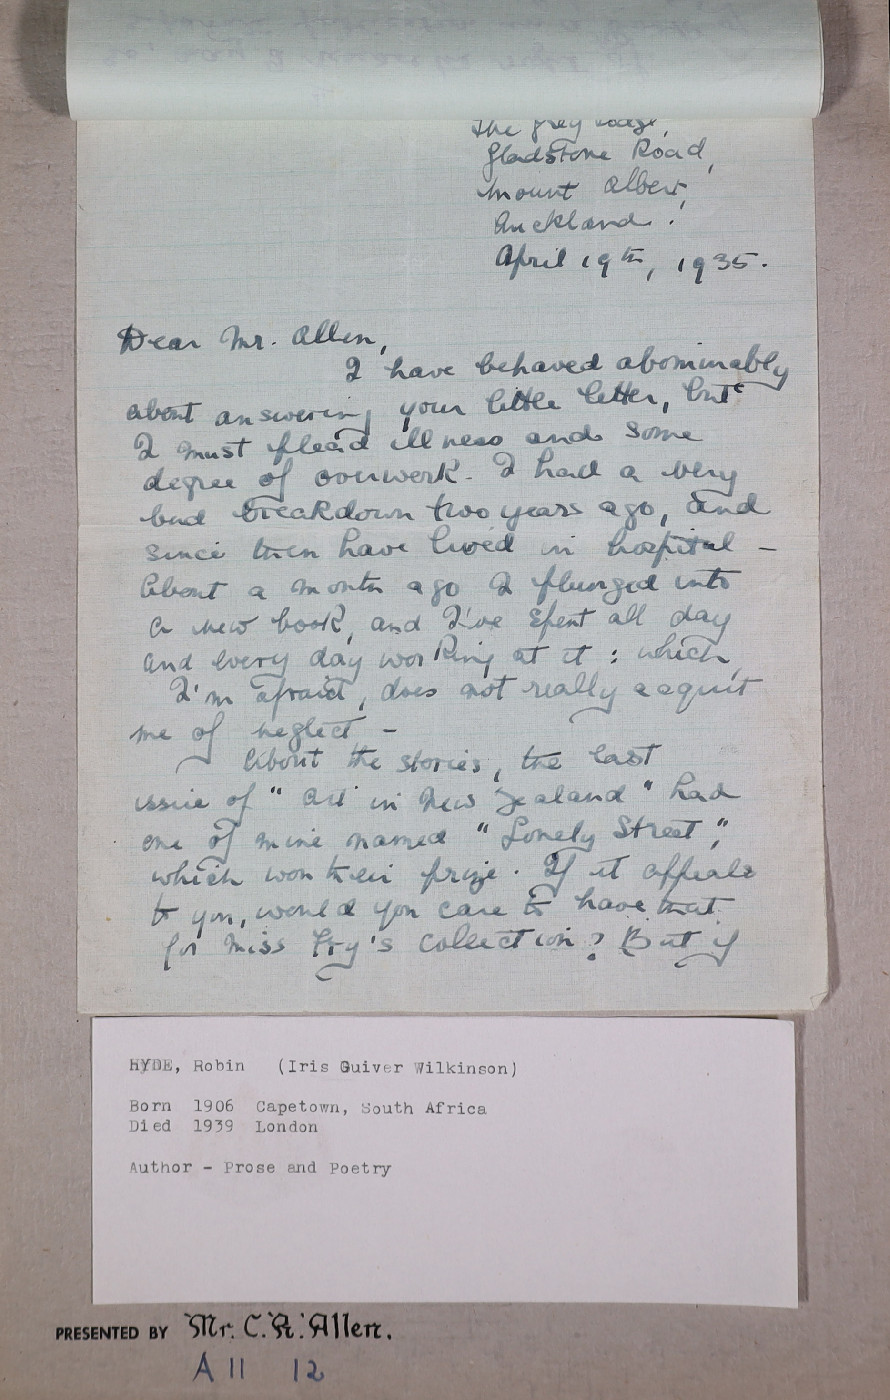 The Grey Lodge,
Gladstone Road,
Mount Albert,
Auckland.
April 19th, 1935.
Dear Mr. Allen,
I have behaved abominably
about answering your little letter, but
I must plead illness and some
degree of overwork. I had a very
bad breakdown two years ago, and
since then have lived in hospital –
About a month ago I plunged into
a new book, and I've spent all day
and every day working at it : which,
I'm afraid, does not really acquit
me of neglect –
About the stories, the last
issue of "Art in New Zealand" had
one of mine named "Lonely Street",
which won their prize. If it appeals
to you, would you care to have that
for Miss Fry's collection? But if
HYDE, Robin (Iris Guiver Wilkinson)
Born 1906 Capetown, South Africa
Died 1939 London
Author - Prose and Poetry
PRESENTED BY Mr. C. R. Allen.
A 11 12